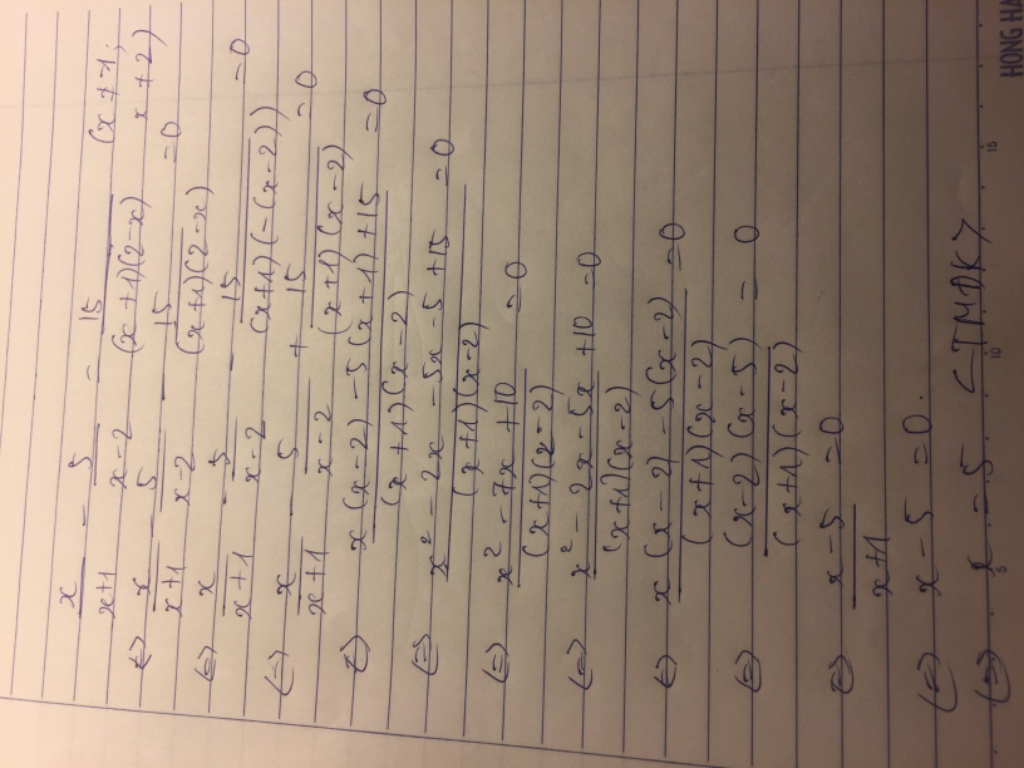 x/(x+1) - 5/(x-2) = 15/((x+1)(2-x)) (x≠1; x≠2)
(=) x/(x+1) - 5/(x-2) - 15/((x+1)(2-x)) = 0
(=) x/(x+1) - 5/(x-2) - 15/((x+1)(-(x-2))) = 0
(=) x/(x+1) - 5/(x-2) + 15/((x+1)(x-2)) = 0
(=) (x(x-2) - 5(x+1) + 15)/((x+1)(x-2)) = 0
(=) (x² - 2x - 5x - 5 + 15)/((x+1)(x-2)) = 0
(=) (x² - 7x + 10)/((x+1)(x-2)) = 0
(=) (x² - 2x - 5x + 10)/((x+1)(x-2)) = 0
(=) (x(x-2) - 5(x-2))/((x+1)(x-2)) = 0
(=) ((x-2)(x-5))/((x+1)(x-2)) = 0
(=) (x-5)/(x+1) = 0
(=) x - 5 = 0.
(=) x = 5 <TMĐK>
5 10 15
HONG HA